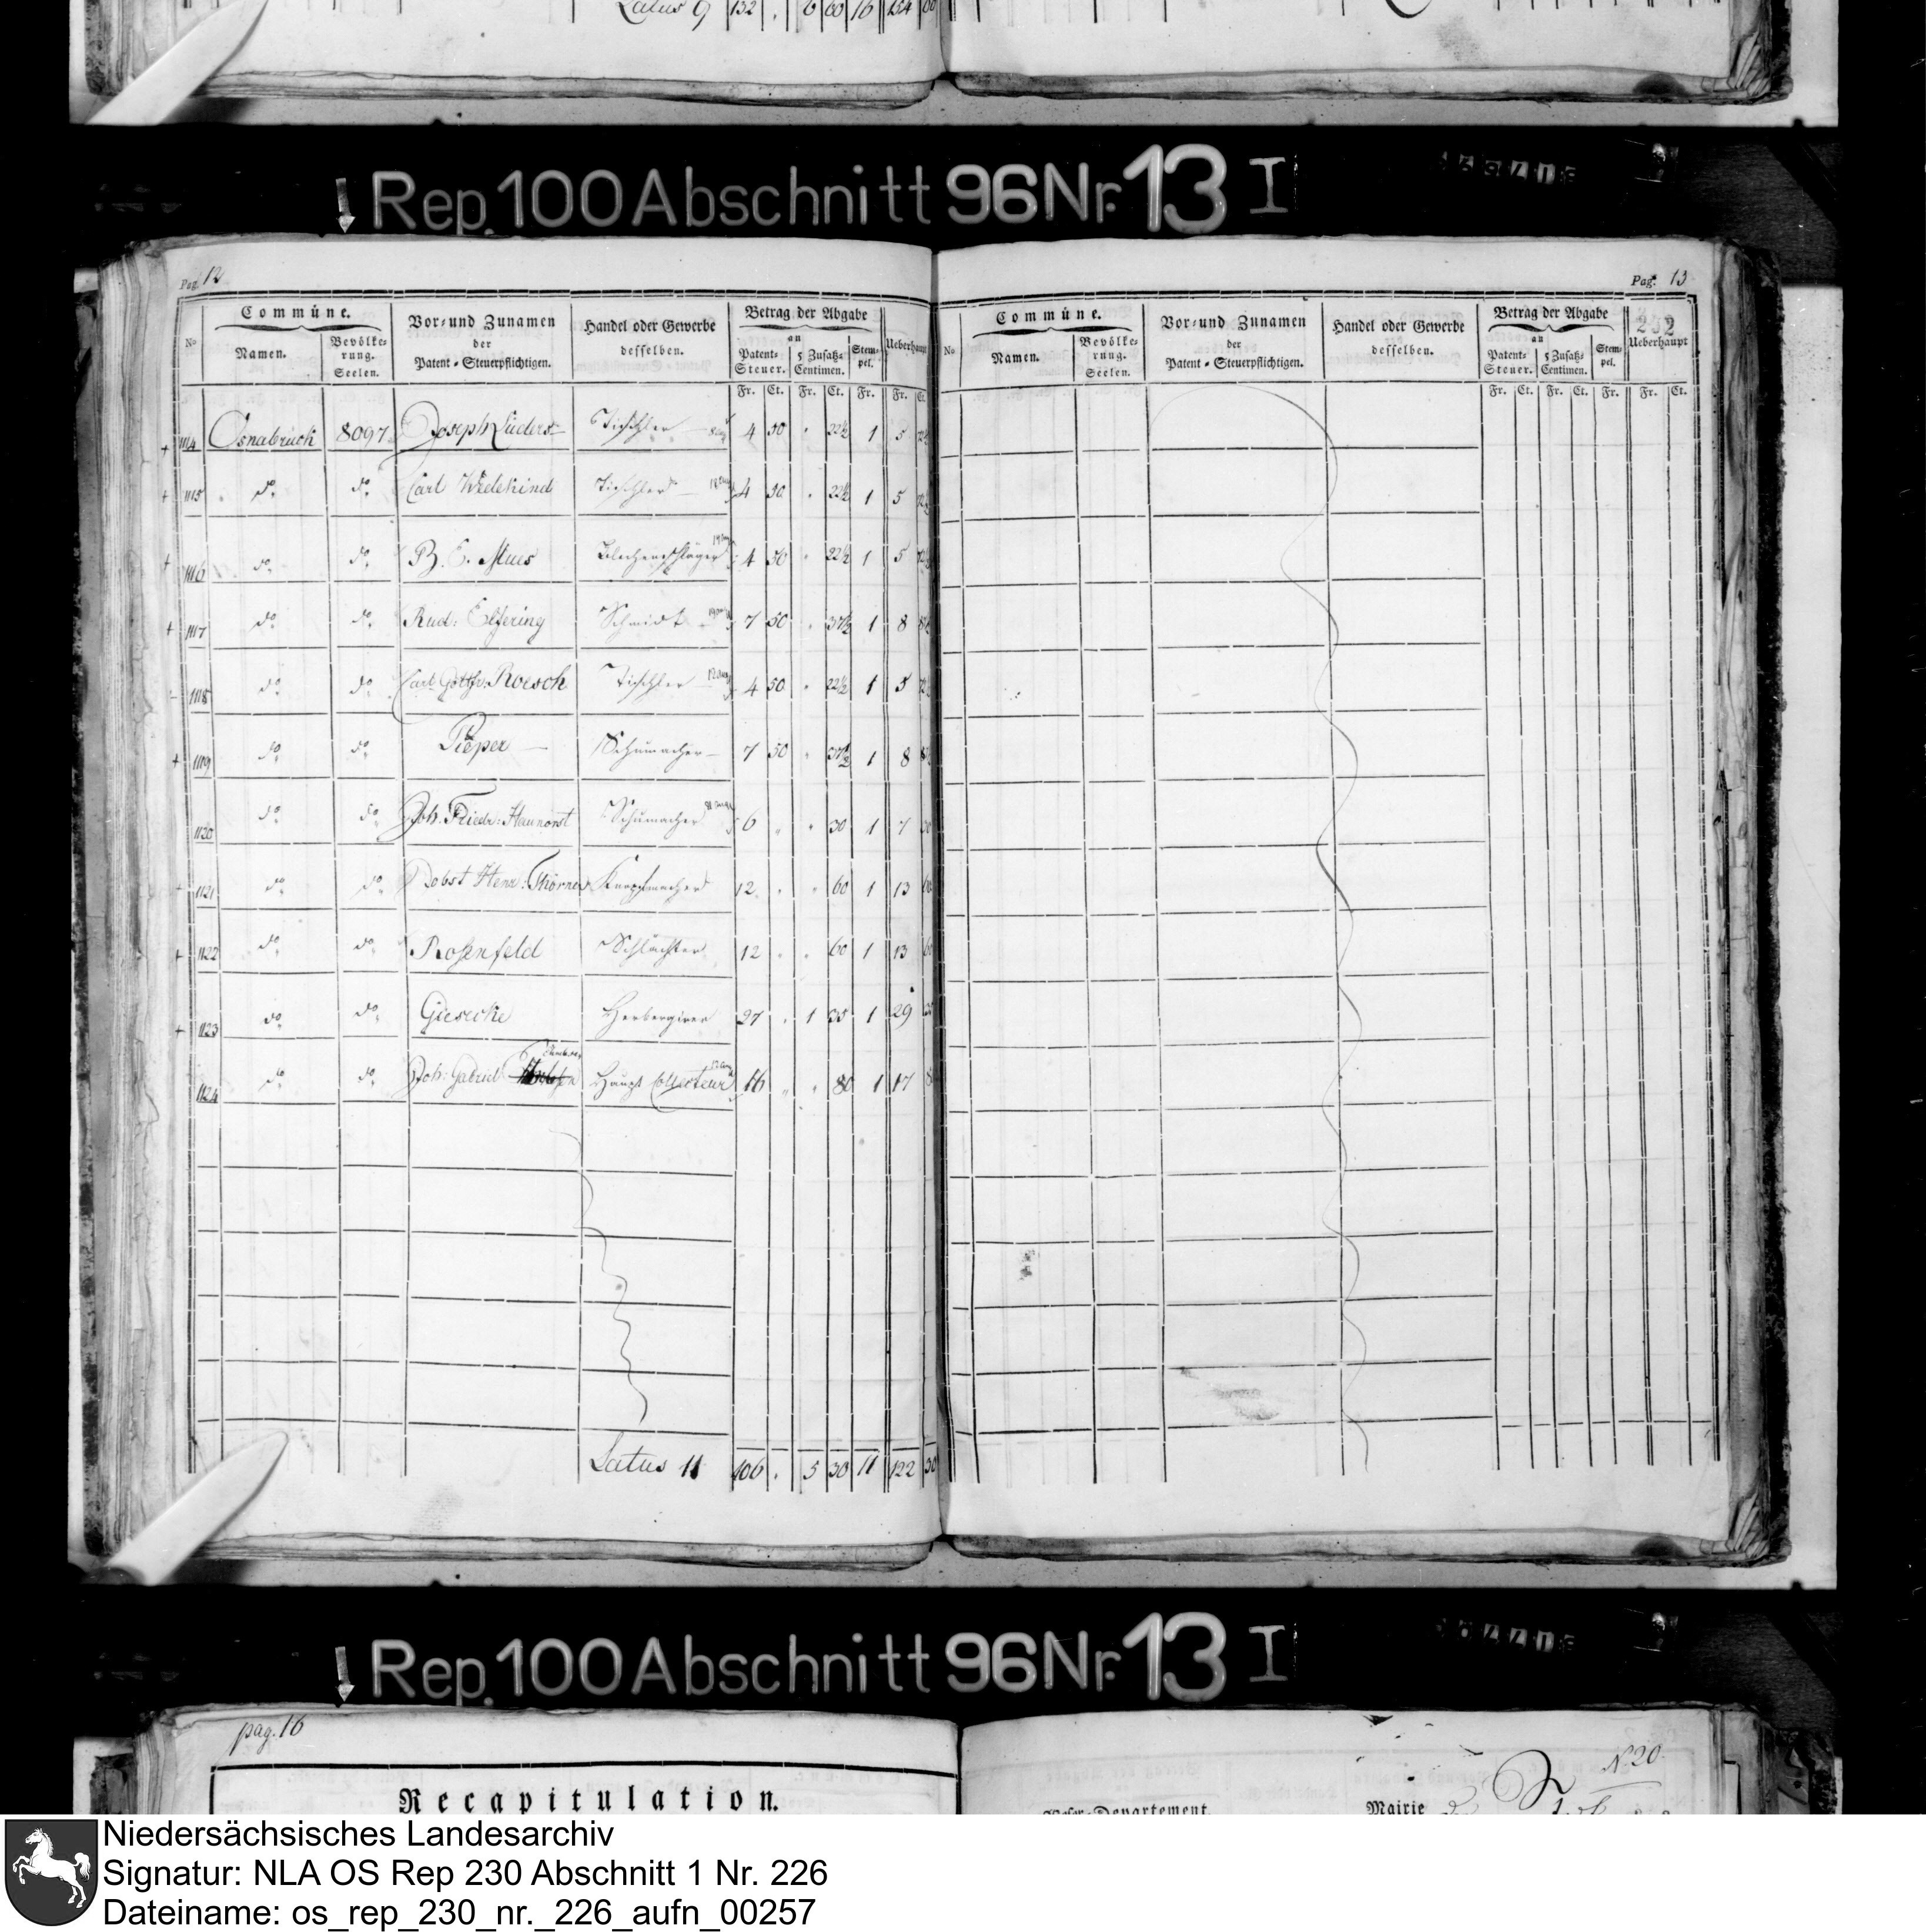 Latus 9 132 . 6 60 16 154 60
Rep. 100 Abschnitt 96 Nr. 13 I
Pag. 12
No
Commüne.
Namen.
Bevölke-
rung.
Seelen.
Vor- und Zunamen
der
Patent-Steuerpflichtigen.
Handel oder Gewerbe
desselben.
Betrag der Abgabe
an
Patent-
Steuer.
5 Zusatz-
Centimen.
Stem-
pel.
Ueberhaupt
Fr. Ct. Fr. Ct. Fr. Fr. Ct.
1114 Osnabrück 8097 Joseph Lüders Tischler 4 50 " 22½ 1 5 72½
1115 do do Carl Wedekind Tischler 4 50 " 22½ 1 5 72½
1116 do do B. E. Mues Blechenschläger 4 50 " 22½ 1 5 72½
1117 do do Rud: Elfering Schmidt 7 50 " 37½ 1 8 87½
1118 do do Carl Gottfr. Roesch Tischler 4 50 " 22½ 1 5 72½
1119 do do Pieper Schumacher 7 50 " 37½ 1 8 87½
1120 do do Joh. Friedr: Haunorst Schumacher 6 " " 30 1 7 30
1121 do do Jobst Henr: Thörner Knopfmacher 12 " " 60 1 13 60
1122 do do Rosenfeld Schlächter 12 " " 60 1 13 60
1123 do do Giesecke Herbergirer 27 " 1 35 1 29 35
1124 do do Joh: Gabriel Haupt Collecteur 16 " " 80 1 17 80
Latus 11 106 . 5 30 11 122 30
Pag. 13
232
No
Commüne.
Namen.
Bevölke-
rung.
Seelen.
Vor- und Zunamen
der
Patent-Steuerpflichtigen.
Handel oder Gewerbe
desselben.
Betrag der Abgabe
an
Patent-
Steuer.
5 Zusatz-
Centimen.
Stem-
pel.
Ueberhaupt
Fr. Ct. Fr. Ct. Fr. Fr. Ct.
Rep. 100 Abschnitt 96 Nr. 13 I
pag. 16
Recapitulation.
N. 20
Weser-Departement.
Mairie
Niedersächsisches Landesarchiv
Signatur: NLA OS Rep 230 Abschnitt 1 Nr. 226
Dateiname: os_rep_230_nr._226_aufn_00257